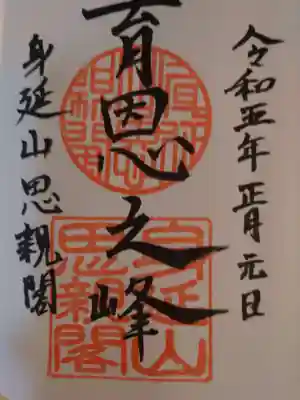 令和五年 正月元日
育恩之峰
身延山
思親閣
身延山思親閣